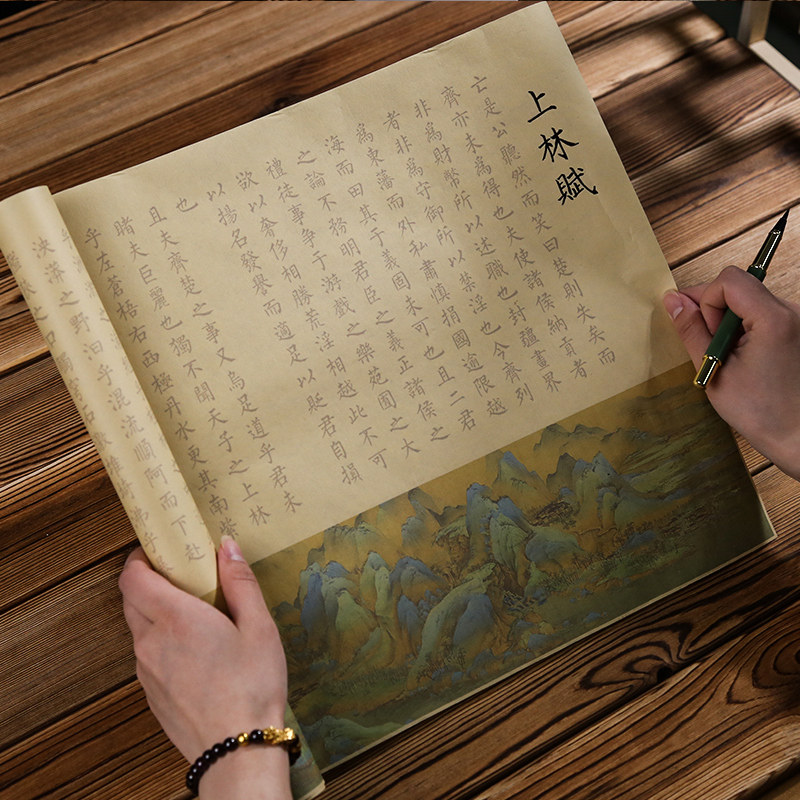 上林賦
亡是公聽然而笑曰楚則失矣而
齊亦未爲得也夫使諸侯納貢者
非爲財幣所以述職也封疆畫界
者非爲守御所以禁淫也今齊列
爲東藩而外私肅慎捐國逾限越
海而田其于義固未可也且二君
之論不務明君臣之義正諸侯之
禮徒事爭于游戲之樂苑囿之大
欲以奢侈相勝荒淫相越此不可
以揚名發譽而適足以貶君自損
也
且夫齊楚之事又烏足道乎君未
睹夫巨麗也獨不聞天子之上林
乎左蒼梧右西極丹水更其南紫
泱漭之野汩乎混流順阿而下赴
之口觸穹石激堆埼沸乎